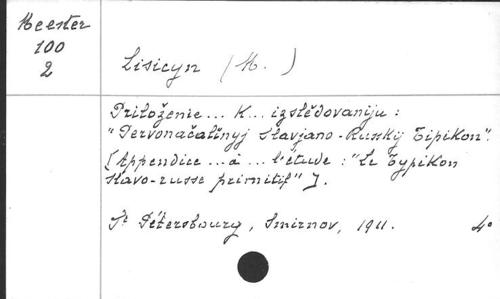 Meester
100
2
Lisicyn (M.)
Priloženie... K... izslědovaniju :
"Pervonačal'nyj slavjano-Russkij Tipikon".
[Appendice... à... l'étude : "Le Typikon
slavo-russe primitif"].
St Pétersbourg, Smirnov, 1911. 4°